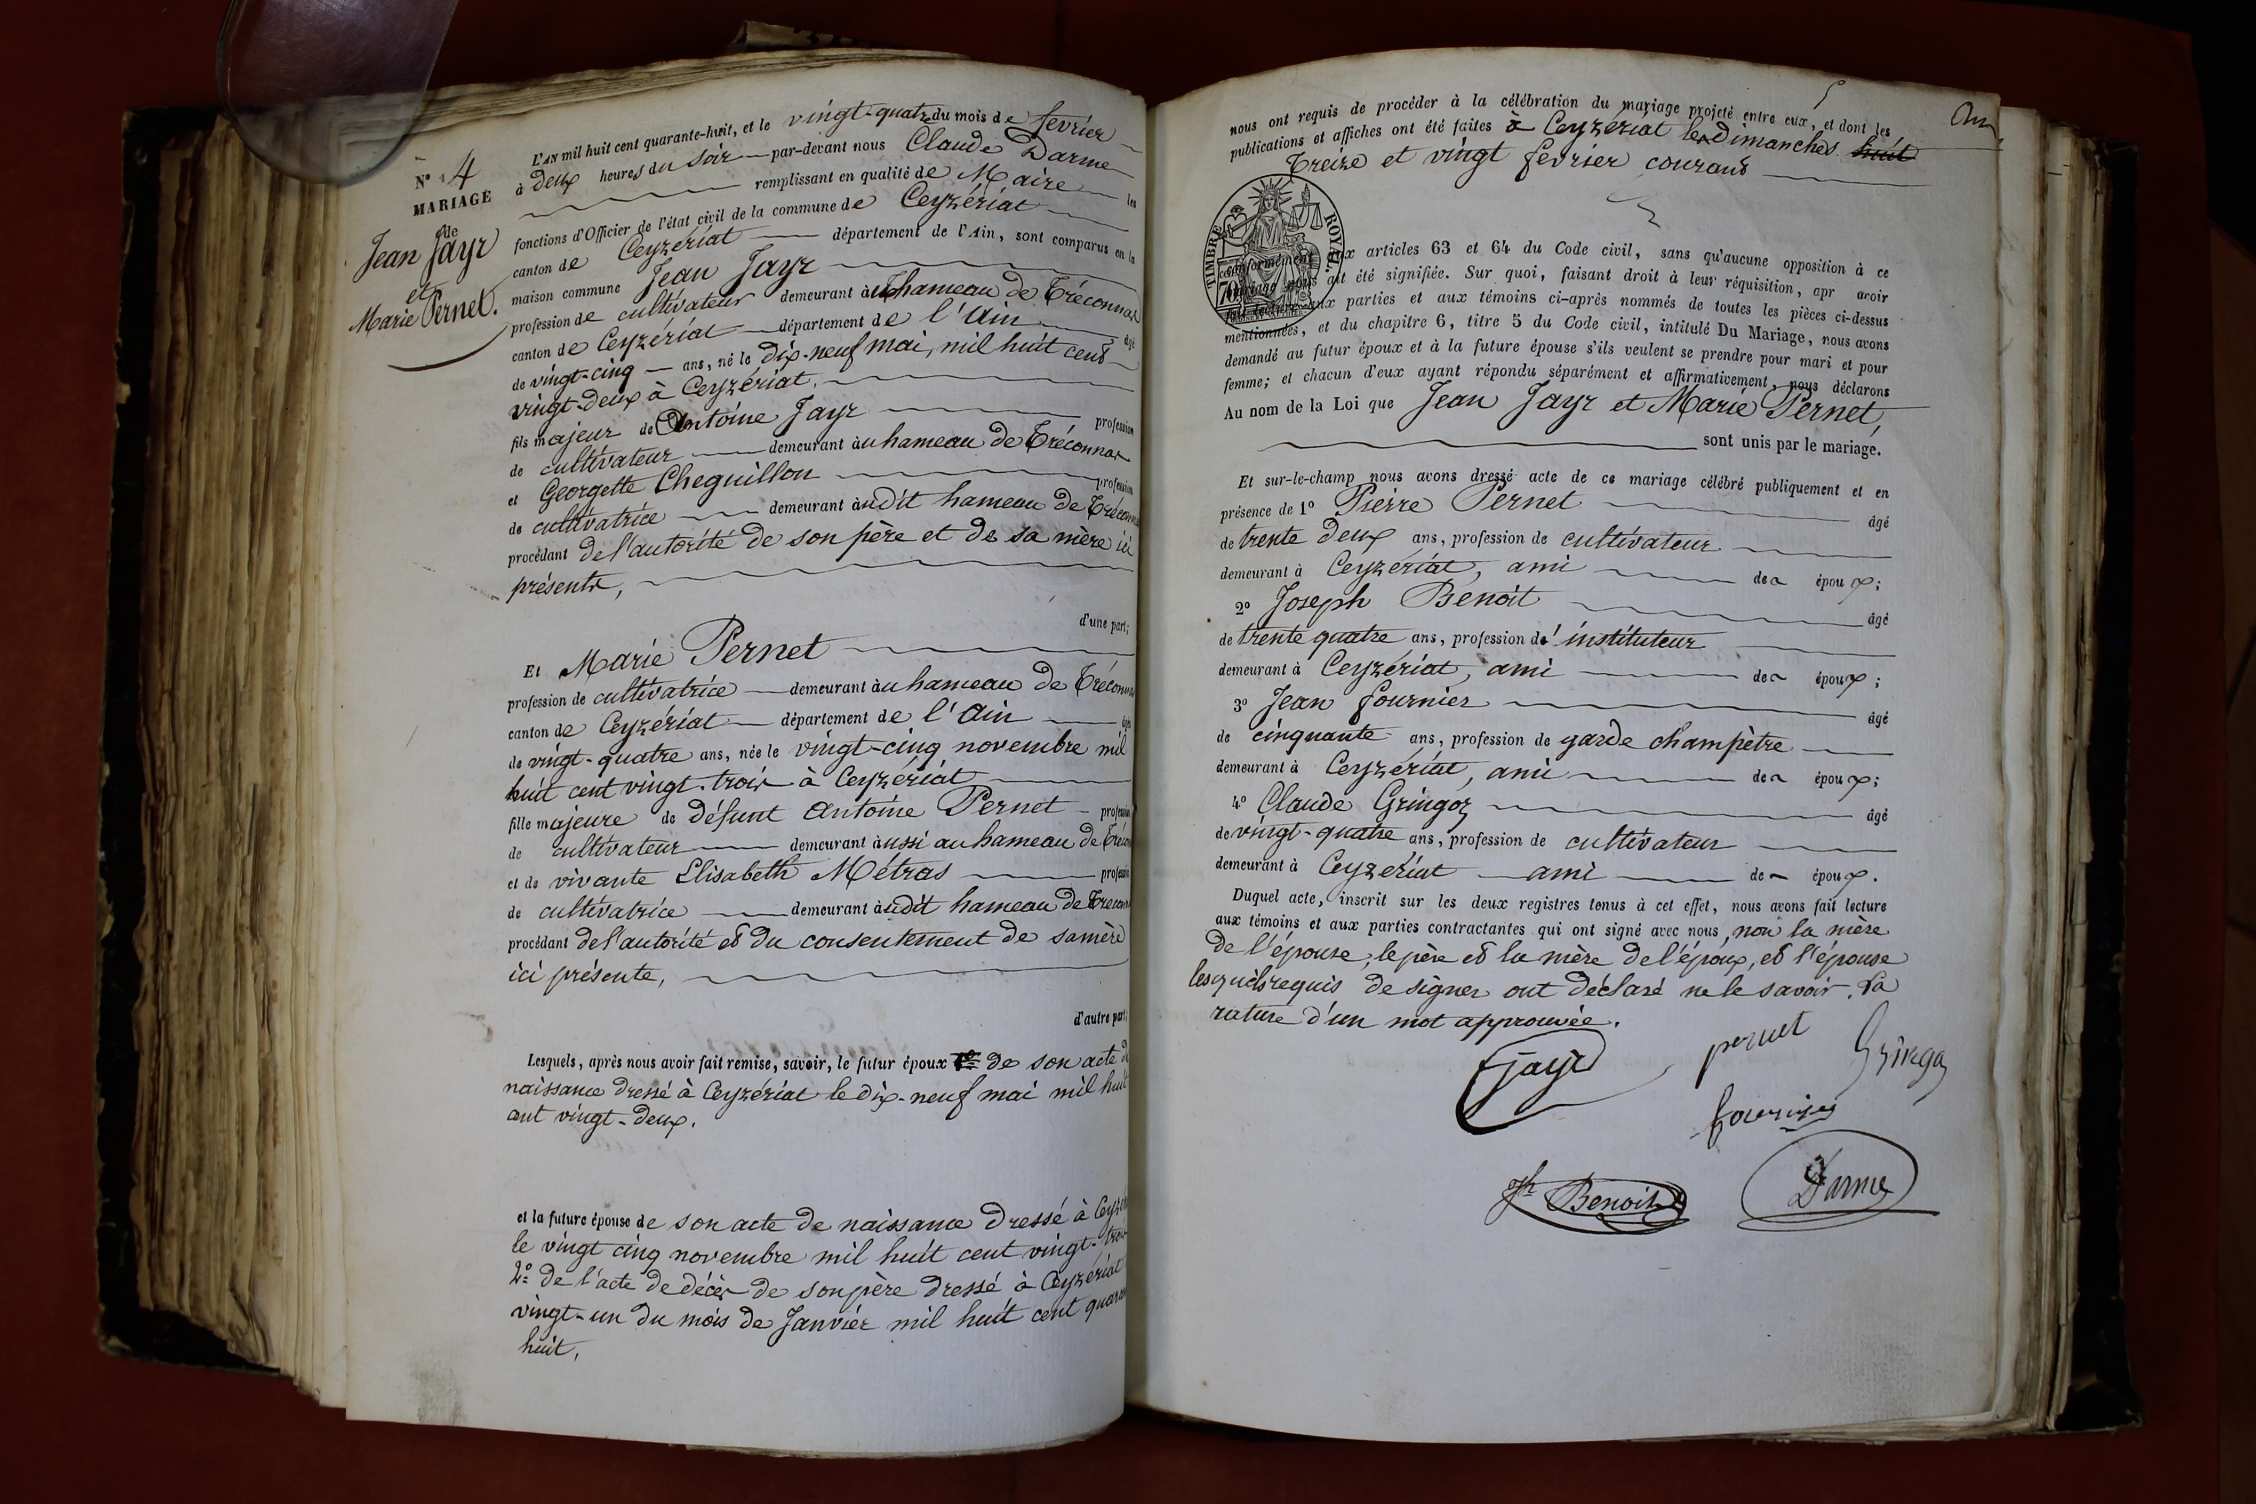 N° 4
MARIAGE
de
Jean Jayr
et
Marie Pernet.
L'AN mil huit cent quarante-huit, et le vingt-quatre du mois de fevrier
à deux heures du soir par-devant nous Claude Darme
remplissant en qualité de Maire les
fonctions d'Officier de l'état civil de la commune de Ceyzériat
canton de Ceyzériat département de l'Ain, sont comparus en la
maison commune Jean Jayr
profession de cultivateur demeurant au hameau de Tréconnas
canton de Ceyzériat département de l'Ain âgé
de vingt-cinq ans, né le dix-neuf mai, mil huit cent
vingt-deux à Ceyzériat.
fils majeur de Antoine Jayr profession
de cultivateur demeurant au hameau de Tréconnas
et Georgette Cheguillon profession
de cultivatrice demeurant audit hameau de Tréconnas
procédant de l'autorité de son père et de sa mère ici
présents,
d'une part;
Et Marie Pernet
profession de cultivatrice demeurant au hameau de Tréconnas
canton de Ceyzériat département de l'Ain âgée
de vingt-quatre ans, née le vingt-cinq novembre mil
huit cent vingt-trois à Ceyzériat
fille majeure de défunt Antoine Pernet profession
de cultivateur demeurant aussi au hameau de Trécon
et de vivante Elisabeth Métras profession
de cultivatrice demeurant audit hameau de Trécon
procédant de l'autorité et du consentement de sa mère
ici présente,
d'autre part;
Lesquels, après nous avoir fait remise, savoir, le futur époux 1° de son acte de
naissance dressé à Ceyzériat le dix-neuf mai mil huit
cent vingt-deux.
et la future épouse de son acte de naissance dressé à Ceyzé
le vingt cinq novembre mil huit cent vingt-trois
2° de l'acte de décès de son père dressé à Ceyzériat
vingt-un du mois de Janvier mil huit cent quaran
huit.
nous ont requis de procéder à la célébration du mariage projeté entre eux, et dont les
publications et affiches ont été faites à Ceyzériat les dimanches huit
treize et vingt fevrier courant
TIMBRE ROYAL
70
conformément aux articles 63 et 64 du Code civil, sans qu'aucune opposition à ce
mariage nous ait été signifiée. Sur quoi, faisant droit à leur réquisition, apr avoir
fait lecture aux parties et aux témoins ci-après nommés de toutes les pièces ci-dessus
mentionnées, et du chapitre 6, titre 5 du Code civil, intitulé Du Mariage, nous avons
demandé au futur époux et à la future épouse s'ils veulent se prendre pour mari et pour
femme; et chacun d'eux ayant répondu séparément et affirmativement, nous déclarons
Au nom de la Loi que Jean Jayr et Marie Pernet,
sont unis par le mariage.
Et sur-le-champ nous avons dressé acte de ce mariage célébré publiquement et en
présence de 1° Pierre Pernet âgé
de trente deux ans, profession de cultivateur
demeurant à Ceyzériat, ami des époux;
2° Joseph Benoit âgé
de trente quatre ans, profession d'instituteur
demeurant à Ceyzériat, ami des époux;
3° Jean fournier âgé
de cinquante ans, profession de garde champètre
demeurant à Ceyzériat, ami des époux;
4° Claude Gringoz âgé
de vingt-quatre ans, profession de cultivateur
demeurant à Ceyzériat ami des époux.
Duquel acte, inscrit sur les deux registres tenus à cet effet, nous avons fait lecture
aux témoins et aux parties contractantes qui ont signé avec nous, non la mère
de l'épouse, le père et la mère de l'époux, et l'épouse
lesquels requis de signer ont déclaré ne le savoir. La
rature d'un mot approuvée.
Jayr
pernet
Gringoz
fournier
Jh Benoit
Darme